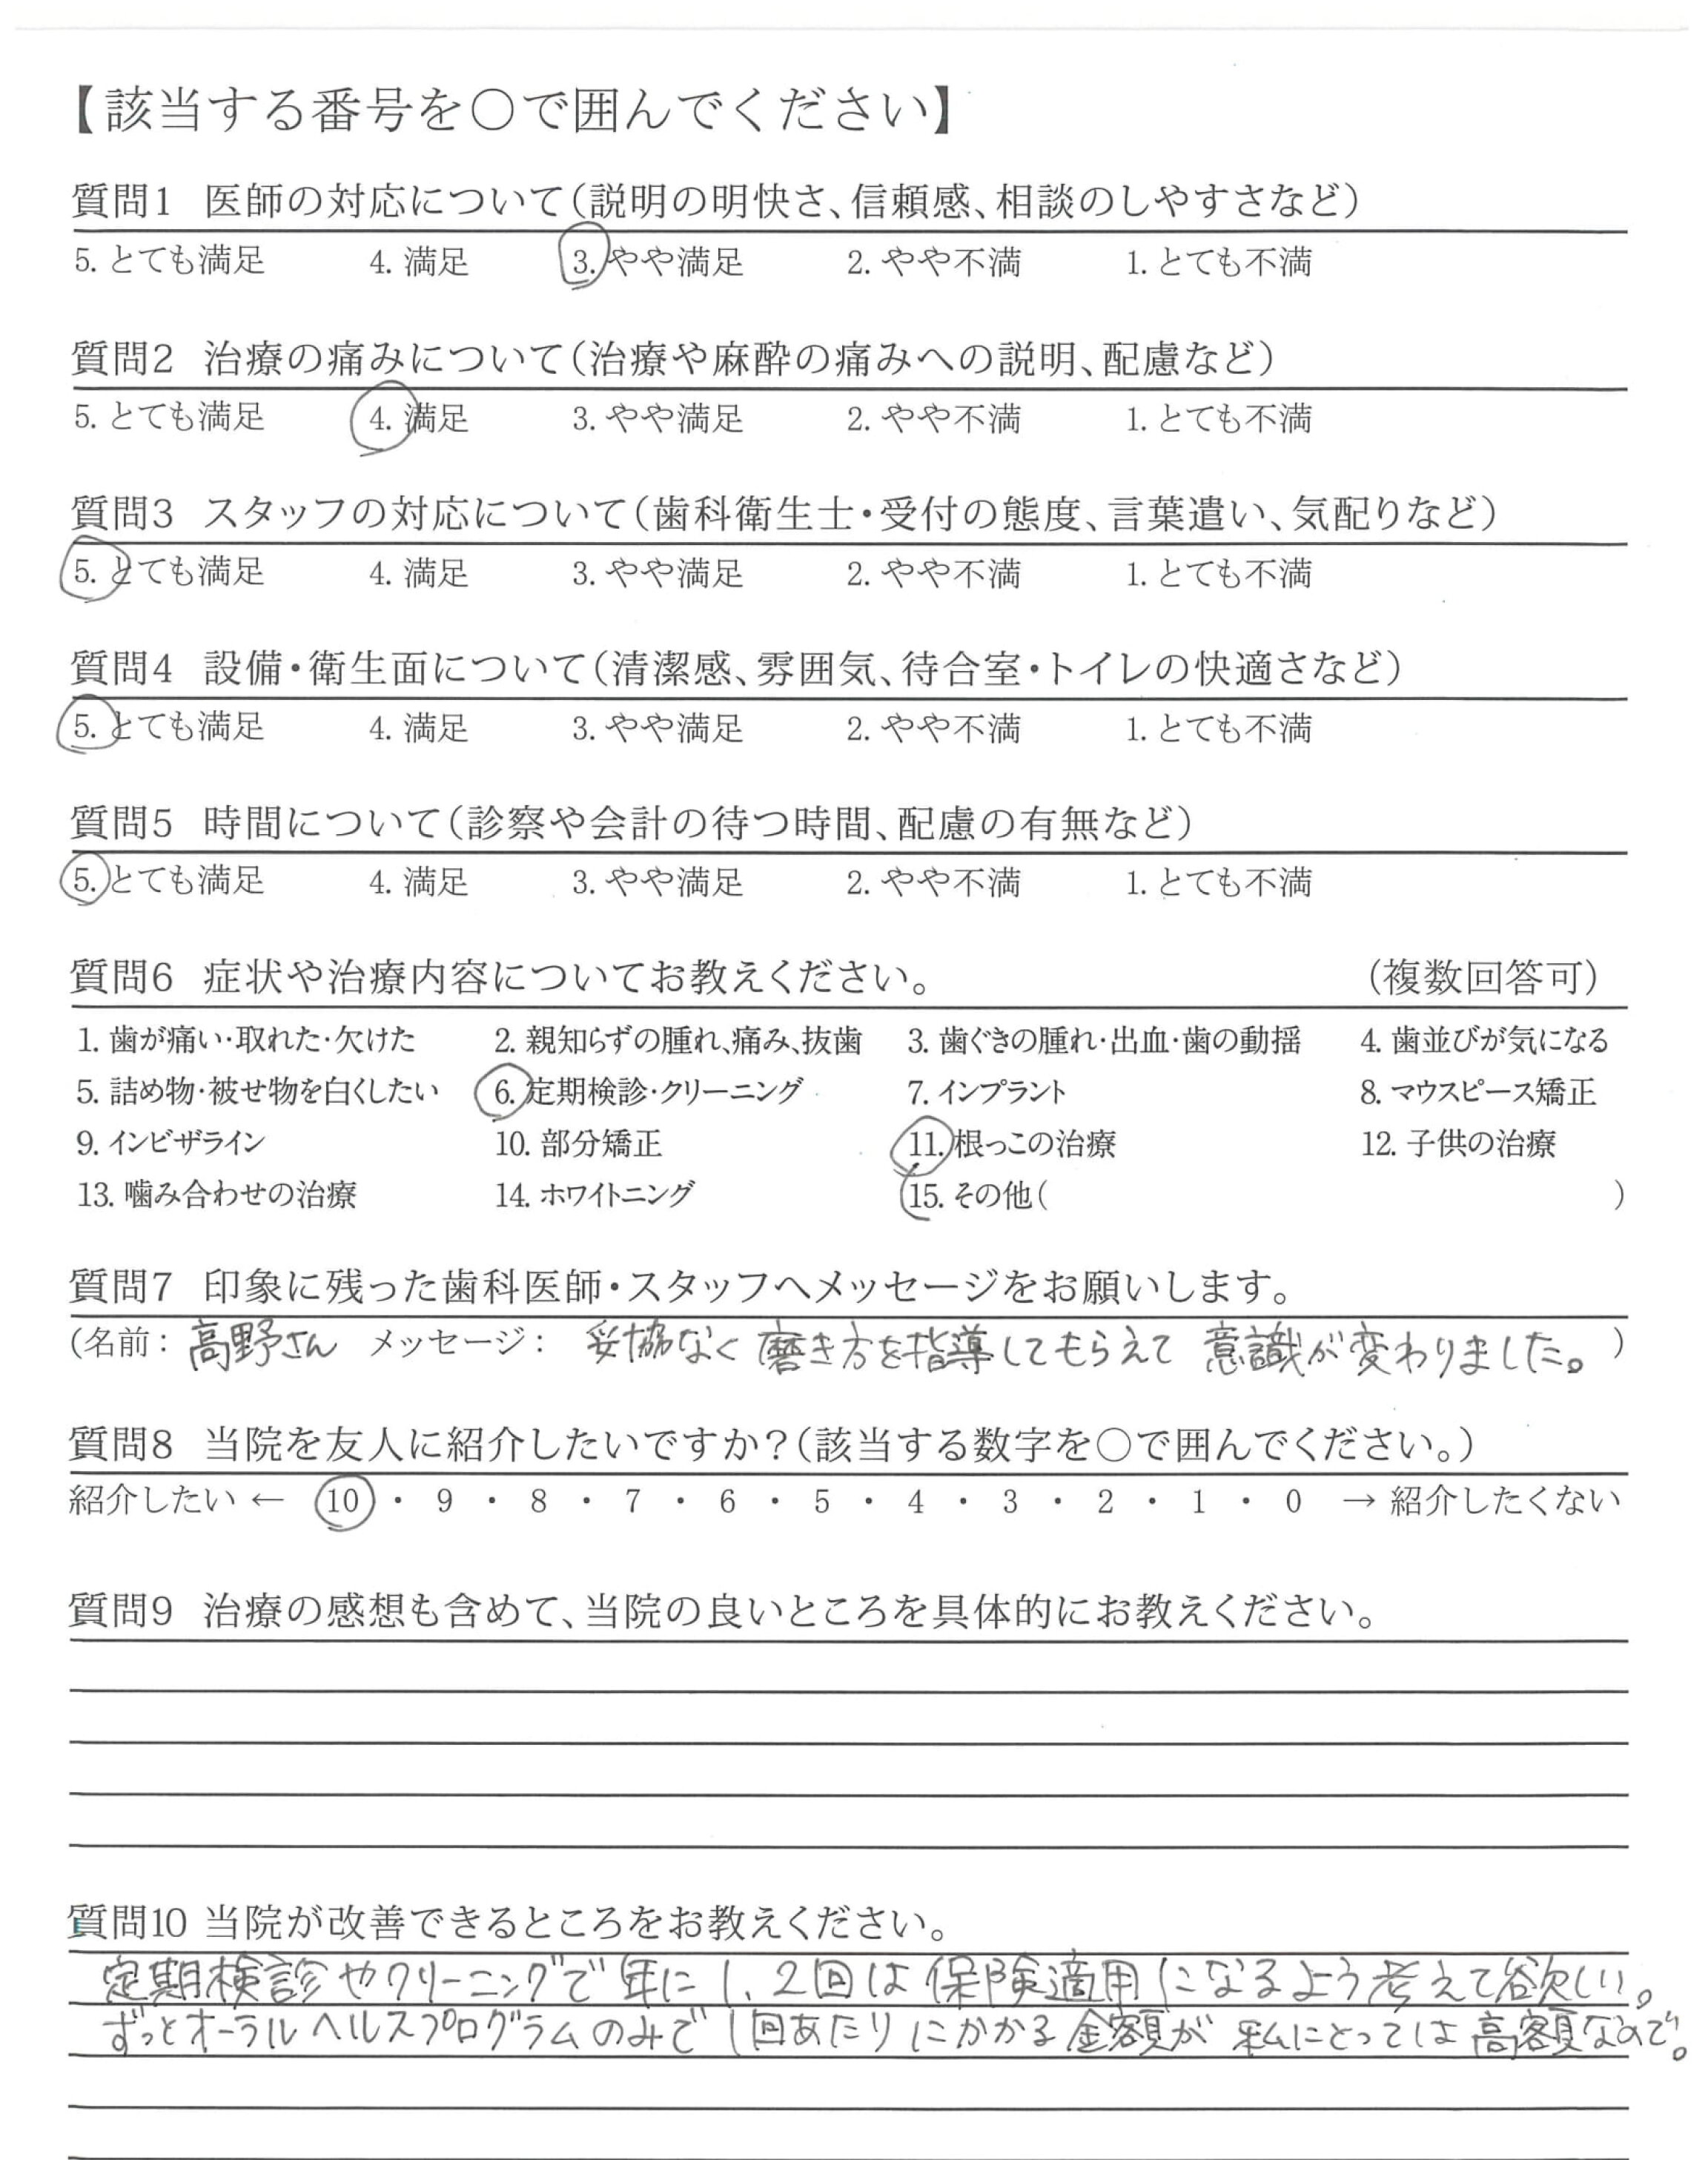 【該当する番号を○で囲んでください】
質問1 医師の対応について(説明の明快さ、信頼感、相談のしやすさなど)
5. とても満足 4. 満足 3. やや満足 2. やや不満 1. とても不満
質問2 治療の痛みについて(治療や麻酔の痛みへの説明、配慮など)
5. とても満足 4. 満足 3. やや満足 2. やや不満 1. とても不満
質問3 スタッフの対応について(歯科衛生士・受付の態度、言葉遣い、気配りなど)
5. とても満足 4. 満足 3. やや満足 2. やや不満 1. とても不満
質問4 設備・衛生面について(清潔感、雰囲気、待合室・トイレの快適さなど)
5. とても満足 4. 満足 3. やや満足 2. やや不満 1. とても不満
質問5 時間について(診察や会計の待つ時間、配慮の有無など)
5. とても満足 4. 満足 3. やや満足 2. やや不満 1. とても不満
質問6 症状や治療内容についてお教えください。 (複数回答可)
1. 歯が痛い・取れた・欠けた 2. 親知らずの腫れ、痛み、抜歯 3. 歯ぐきの腫れ・出血・歯の動揺 4. 歯並びが気になる
5. 詰め物・被せ物を白くしたい 6. 定期検診・クリーニング 7. インプラント 8. マウスピース矯正
9. インビザライン 10. 部分矯正 11. 根っこの治療 12. 子供の治療
13. 噛み合わせの治療 14. ホワイトニング 15. その他( )
質問7 印象に残った歯科医師・スタッフへメッセージをお願いします。
(名前: 高野さん メッセージ: 妥協なく磨き方を指導してもらえて 意識が変わりました。)
質問8 当院を友人に紹介したいですか?(該当する数字を○で囲んでください。)
紹介したい ← 10 ・ 9 ・ 8 ・ 7 ・ 6 ・ 5 ・ 4 ・ 3 ・ 2 ・ 1 ・ 0 → 紹介したくない
質問9 治療の感想も含めて、当院の良いところを具体的にお教えください。
質問10 当院が改善できるところをお教えください。
定期検診やクリーニングで年に1、2回は保険適用になるよう考えて欲しい。
ずっとオーラルヘルスプログラムのみで1回あたりにかかる金額が私にとっては高額なので。